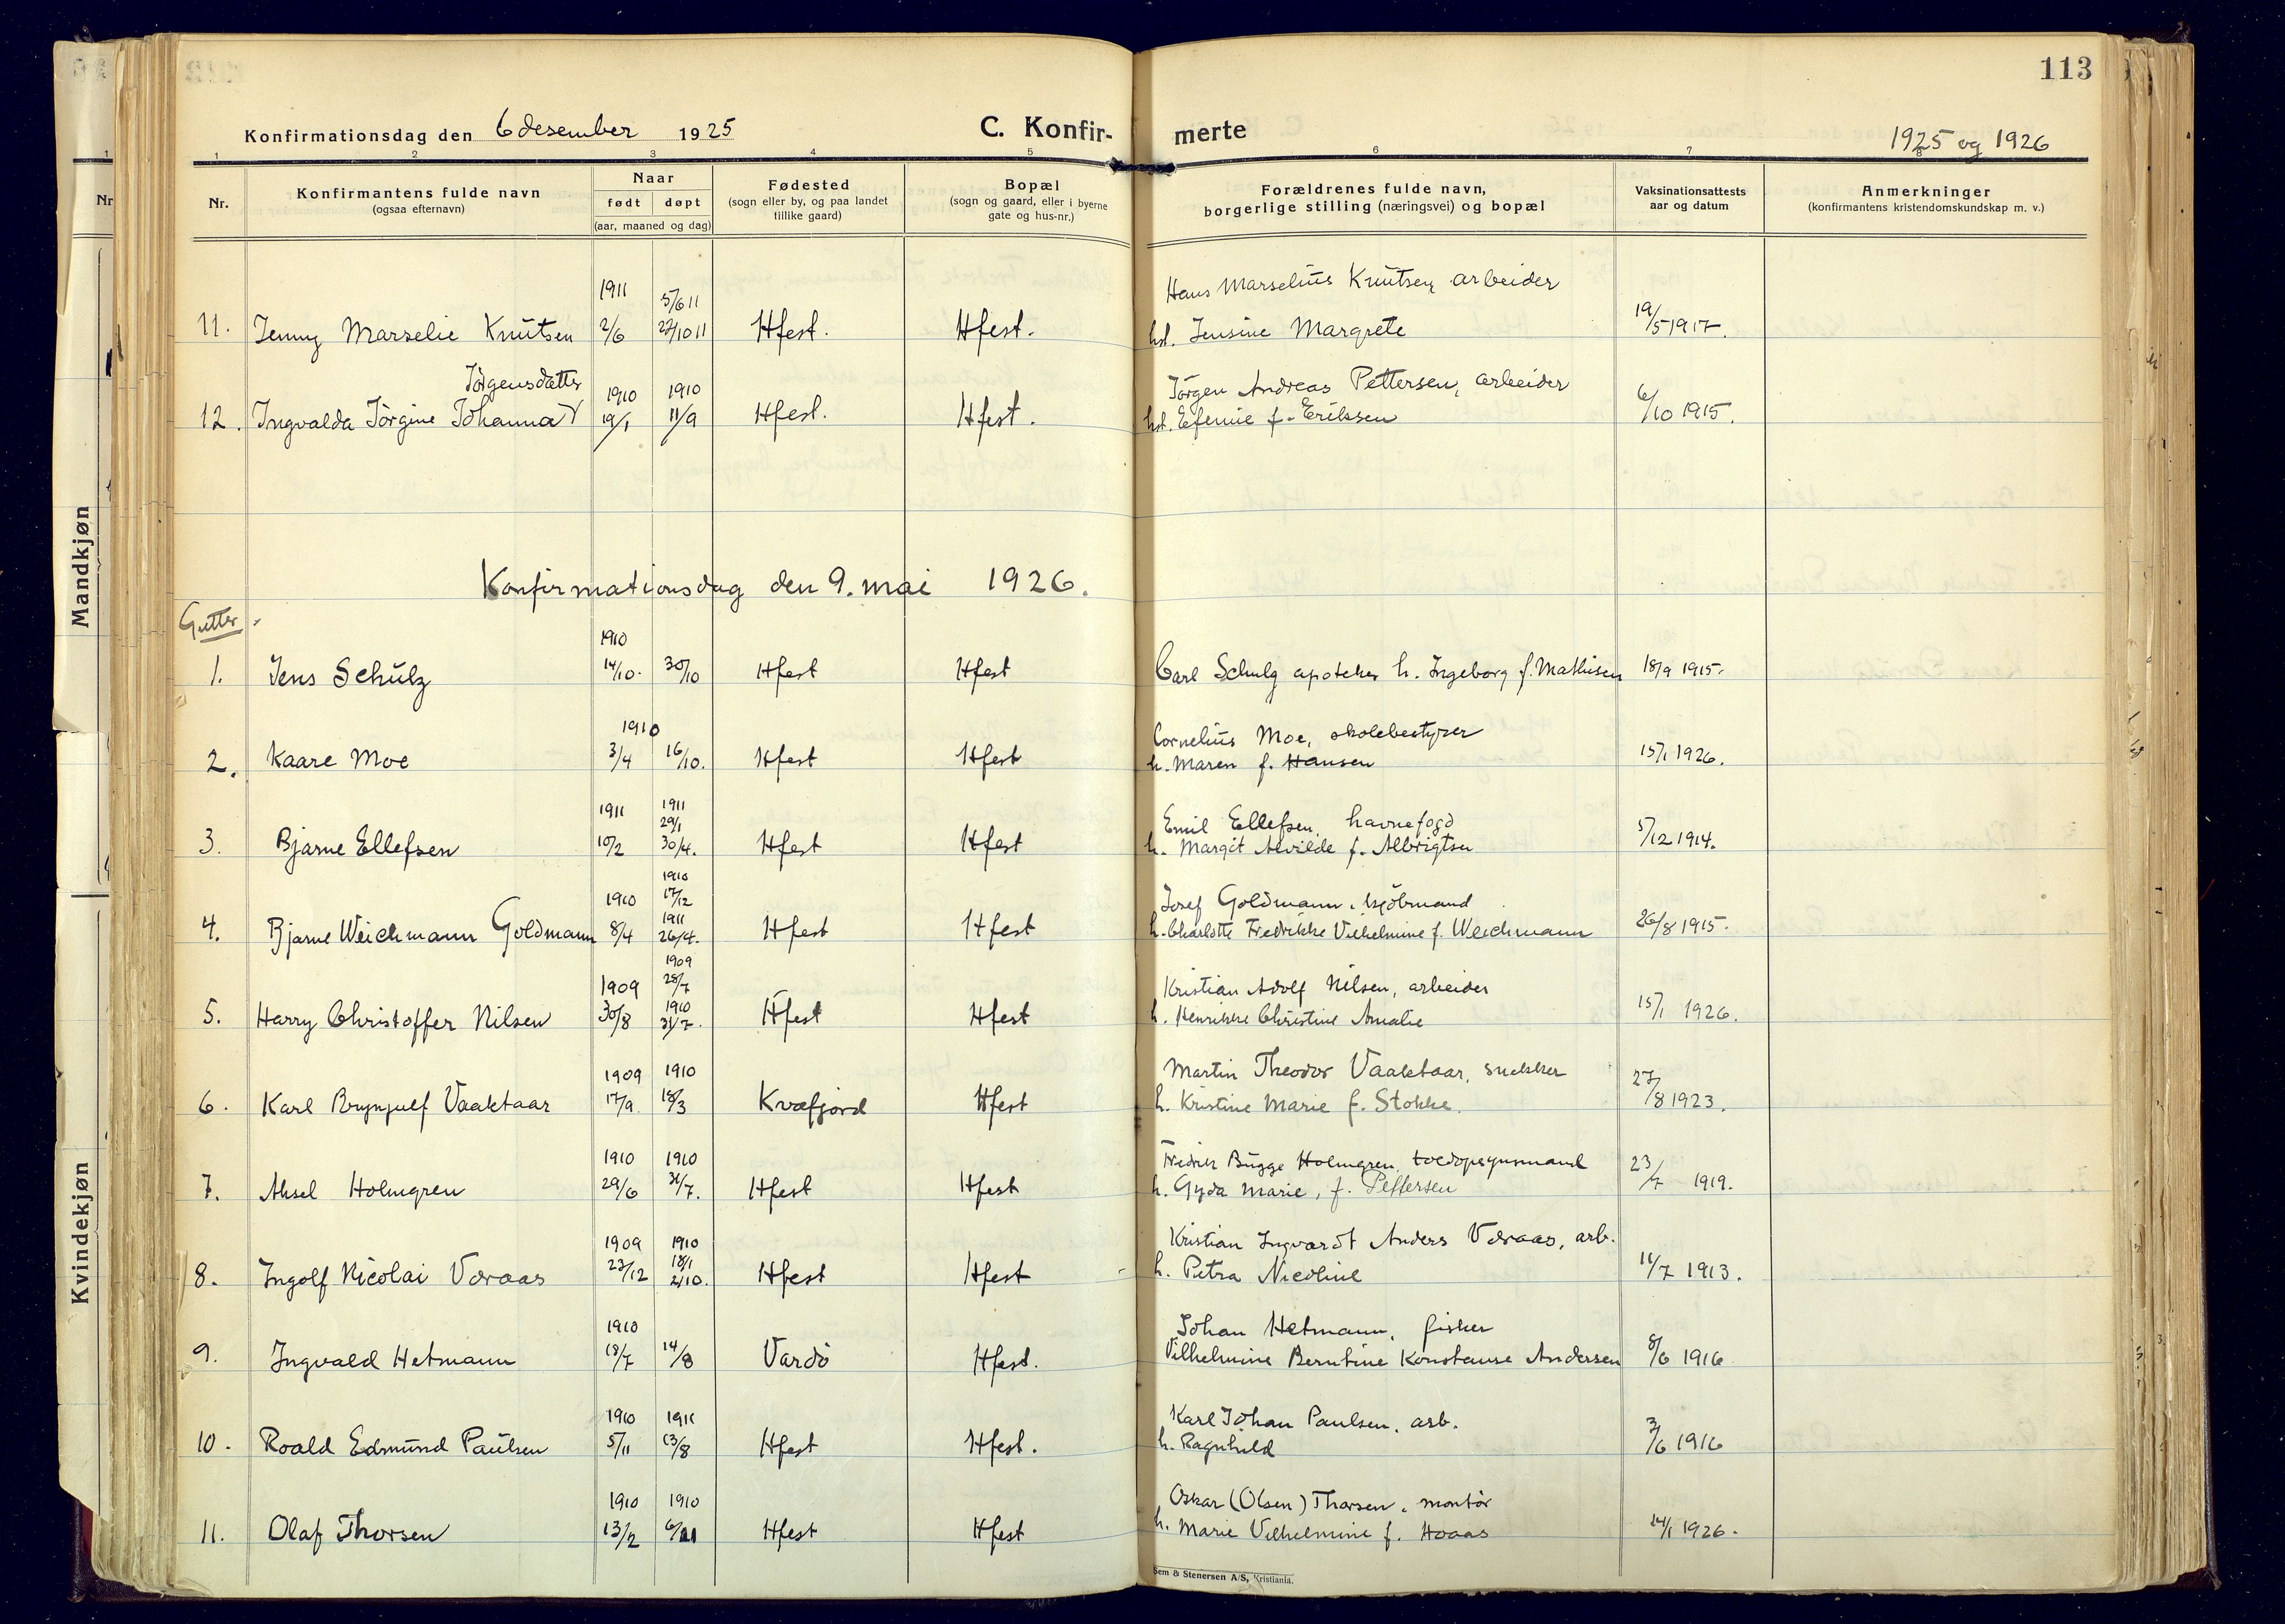 113
Konfirmationsdag den 6 desember 1925
C. Konfir-
merte
1925 og 1926
1 2 3 4 5 6 7 8
Nr.
Konfirmantens fulde navn
(ogsaa efternavn)
Naar
født døpt
(aar, maaned og dag)
Fødested
(sogn eller by, og paa landet
tillike gaard)
Bopæl
(sogn og gaard, eller i byerne
gate og hus-nr.)
Forældrenes fulde navn,
borgerlige stilling (næringsvei) og bopæl
Vaksinationsattests
aar og datum
Anmerkninger
(konfirmantens kristendomskundskap m. v.)
1
Nr
Mandkjøn
Kvindekjøn
1911 5/6 11 Hans Marselius Knutsen arbeider
11. Jenny Marselie Knutsen 2/6 27/10 11 Hfest. Hfest. hst. Jensine Margrete 19/5 1917.
Jörgensdatter 1910 1910 Jörgen Andreas Pettersen, arbeider
12. Ingvalda Jörgine Johanna 19/1 11/9 Hfest. Hfest. hst. Efenie f. Eriksen 6/10 1915.
Konfirmationsdag den 9. mai 1926.
Gutter
1910
1. Jens Schulz 14/10. 30/10 Hfest Hfest Carl Schulz apoteker h. Ingeborg f. Mathisen 18/9 1915.
1910 Cornelius Moe, skolebestyrer
2. Kaare Moe 3/4 16/10. Hfest Hfest h. Maren f. Hansen 15/1 1926.
1911 1911 29/1 Emil Ellefsen, havnefogd
3. Bjarne Ellefsen 10/2 30/4. Hfest Hfest h. Margit Alvilde f. Albrigtsen 5/12 1914.
1910 1910 17/12 1911 Josef Goldmann, kjöbmand
4. Bjarne Weichmann Goldmann 8/4 26/4. Hfest Hfest h. Charlotte Fredrikke Vilhelmine f. Weichmann 26/8 1915.
1909 1909 28/7 1910 Kristian Adolf Nilsen, arbeider
5. Harry Christoffer Nilsen 30/8 31/7. Hfest Hfest h. Henrikke Christine Amalie 15/1 1926.
1909 1910 Martin Theodor Vaaktaar, snekker
6. Karl Brynjulf Vaaktaar 17/9. 18/3 Kvæfjord Hfest h. Kristine Marie f. Stokke. 27/8 1923.
1910 1910 Fredrik Bugge Holmgren, toldopsynsmand
7. Aksel Holmgren 29/6 31/7. Hfest Hfest h. Gyda Marie, f. Pettersen 23/7 1919.
1909 1910 18/1 Kristian Ingvardt Anders Væraas, arb.
8. Ingolf Nicolai Væraas 23/12 2/10. Hfest Hfest h. Petra Nicoline 14/7 1913.
1910 Johan Hetmann, fisker
9. Ingvald Hetmann 18/7 14/8 Vardö Hfest. Vilhelmine Berntine Konstanse Andersen 8/6 1916
1910 1911 Karl Johan Paulsen, arb.
10. Roald Edmund Paulsen 5/11 13/8 Hfest Hfest. h. Ragnhild 3/6 1916
1910 1910 Oskar (Olsen) Thorsen, montör
11. Olaf Thorsen 13/2 Hfest Hfest h. Marie Vilhelmine f. Hoaas 14/1 1926.
Sem & Stenersen A/S, Kristiania.